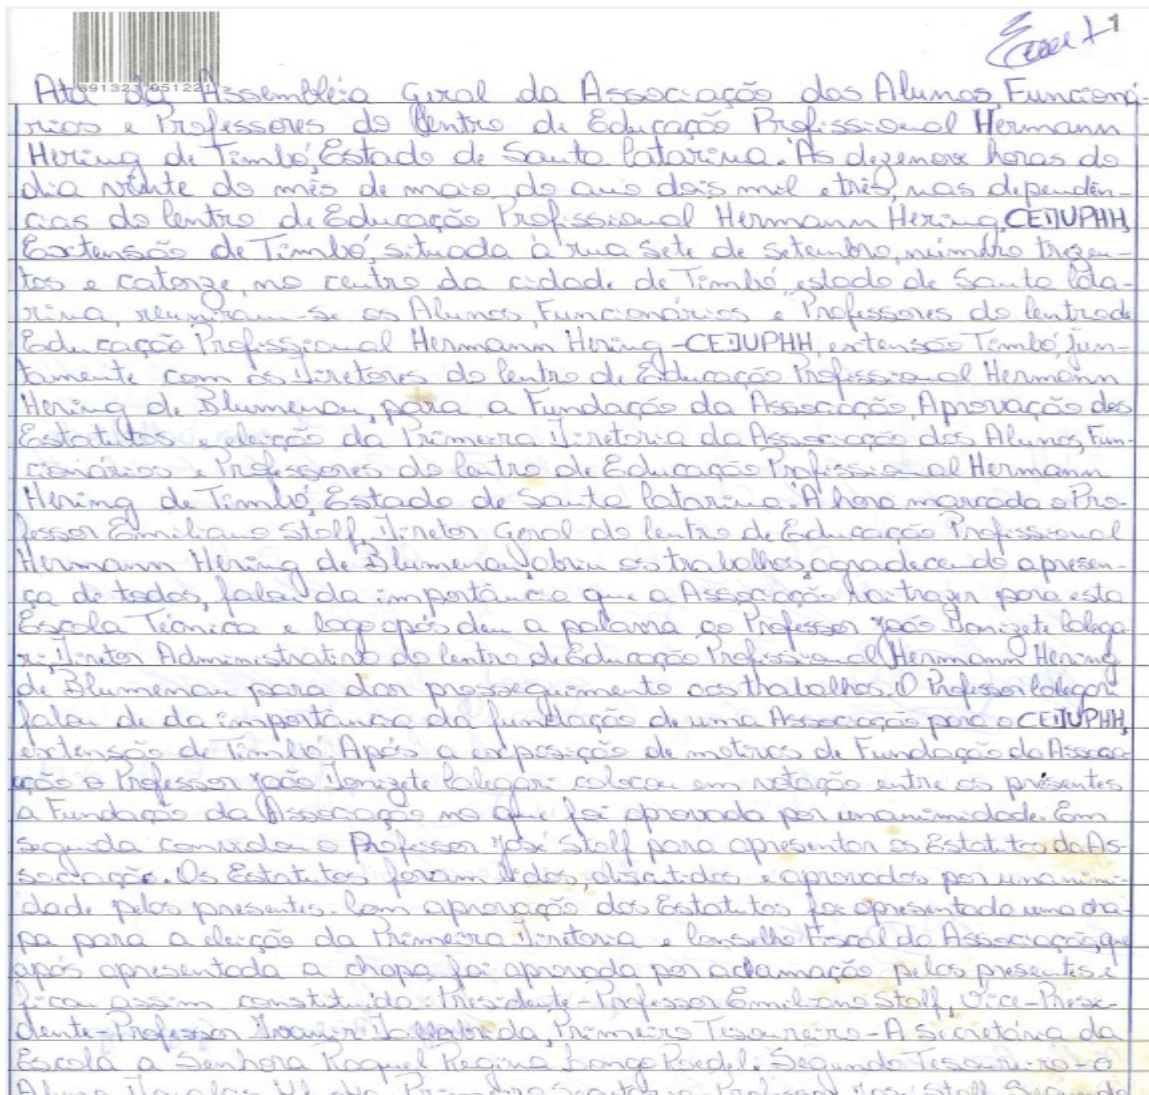 1
691323 051221
Ata da Assembléia Geral da Associação dos Alunos Funcioná-
rios e Professores do Centro de Educação Profissional Hermann
Hering de Timbó, Estado de Santa Catarina. Às dezenove horas do
dia vinte do mês de maio do ano dois mil e três, nas dependên-
cias do Centro de Educação Profissional Hermann Hering, CEDUPHH,
Extensão de Timbó, situada à rua Sete de Setembro, número trezen-
tos e catorze, no centro da cidade de Timbó, estado de Santa Cata-
rina, reuniram-se os Alunos, Funcionários e Professores do Centro de
Educação Profissional Hermann Hering - CEDUPHH, extensão Timbó, jun-
tamente com os Diretores do Centro de Educação Profissional Hermann
Hering de Blumenau, para a Fundação da Associação, Aprovação dos
Estatutos e eleição da Primeira Diretoria da Associação dos Alunos, Fun-
cionários e Professores do Centro de Educação Profissional Hermann
Hering de Timbó, Estado de Santa Catarina. À hora marcada o Pro-
fessor Emiliano Stolf, Diretor Geral do Centro de Educação Profissional
Hermann Hering de Blumenau, abriu os trabalhos, agradecendo a presen-
ça de todos, falou da importância que a Associação vai trazer para esta
Escola Técnica e logo após deu a palavra ao Professor João Donizete Colega-
ri, Diretor Administrativo do Centro de Educação Profissional Hermann Hering
de Blumenau para dar prosseguimento aos trabalhos. O Professor Colegari
falou de da importância da fundação de uma Associação para o CEDUPHH,
extensão de Timbó. Após a exposição de motivos de Fundação da Associa-
ação o Professor João Donizete Colegari colocou em votação entre os presentes
a Fundação da Associação no que foi aprovada por unanimidade. Em
seguida convidou o Professor José Stolf para apresentar os Estatutos da As-
sociação. Os Estatutos foram lidos, discutidos e aprovados por unanimi-
dade pelos presentes. Com aprovação dos Estatutos foi apresentado uma cha-
pa para a eleição da Primeira Diretoria e Conselho Fiscal da Associação, que
após apresentada a chapa foi aprovada por aclamação pelos presentes e
ficou assim constituída: Presidente - Professor Emiliano Stolf, Vice-Presi-
dente - Professor Primeiro Tesoureiro - A secretária da
Escola a Senhora Raquel Regina Longo Segundo Tesoureiro - O
Aluno Primeiro Secretário - Professor José Stolf Segundo